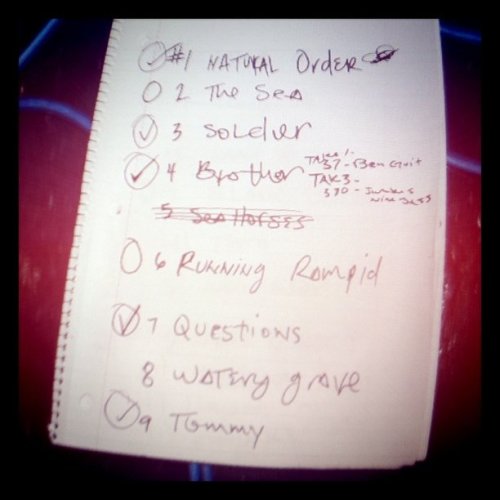 #1 NATURAL Order
2 The Sea
3 Soldier
4 Brother
TAKE 1-
37 - Ben Guit
TAK3 -
330 -
5 Sea Horses
6 RUNNING Rampid
7 Questions
8 WATERY grave
9 Tommy